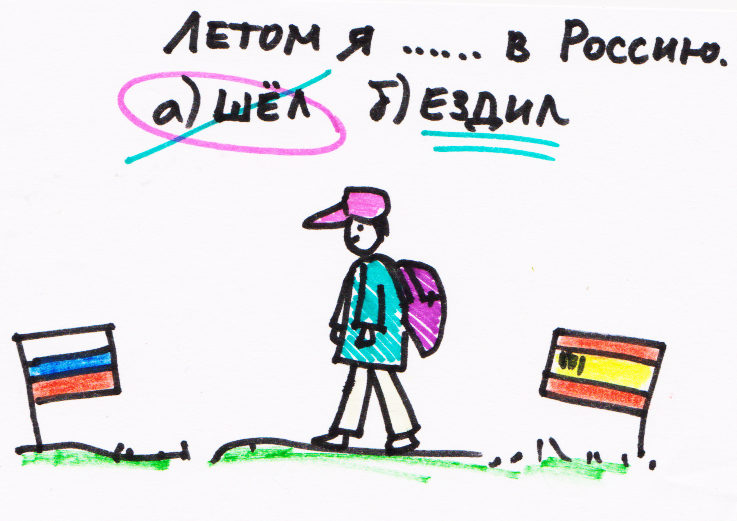 Летом я ...... в Россию.
а) шёл б) ездил